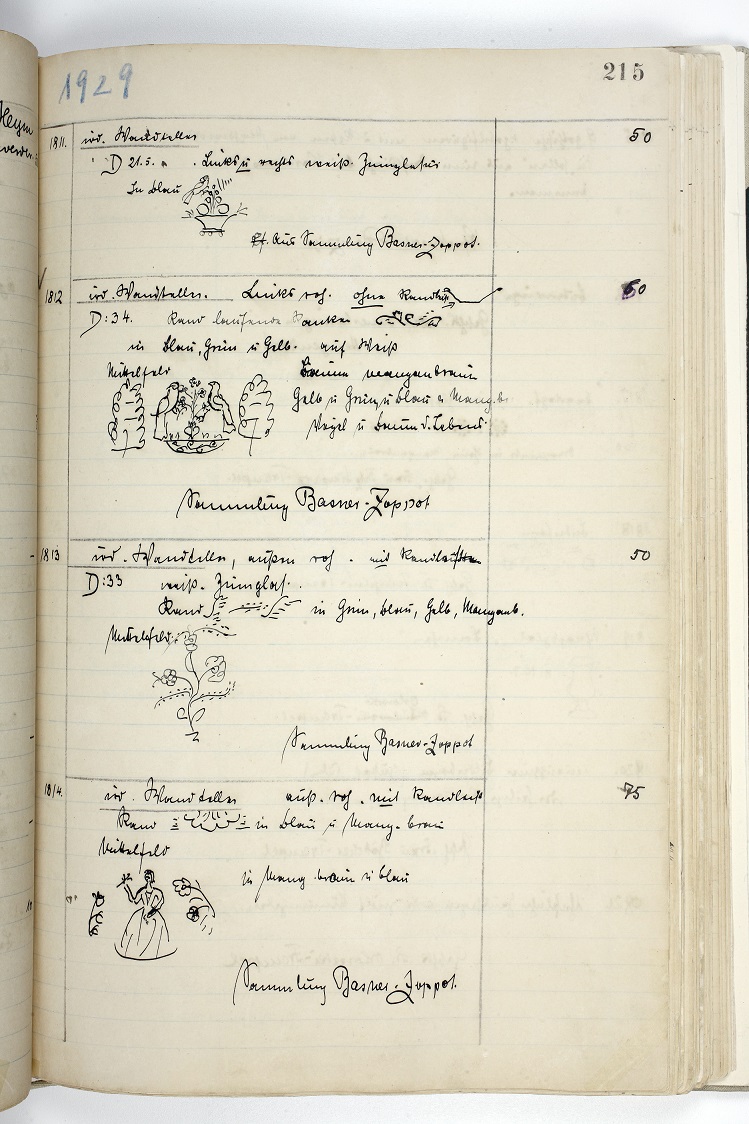 1929
215
1811. ird. Wandteller 50
D 21.5. Links u rechts weiß. Zinnglasur
In blau
Aus Sammlung Basner-Zoppot.
1812 ird. Wandteller. Links roh. ohne 50
D: 34. Rand laufende Ranken
in blau, Grün u Gelb. auf Weiß
Mittelfeld Bäume manganbraun
Gelb u Grün, u blau u Mang. br.
Vögel u Baum d. Lebens
Sammlung Basner-Zoppot
1813 ird. Wandteller, außen roh. mit 50
D: 33 weiß. Zinnglas.
Rand in Grün, blau, Gelb, Manganb.
Mittelfeld
Sammlung Basner-Zoppot
1814. ird. Wandteller auß. roh. mit Randleist 75
Rand in blau u Mang. braun
Mittelfeld
in Mang. braun u blau
Sammlung Basner-Zoppot.